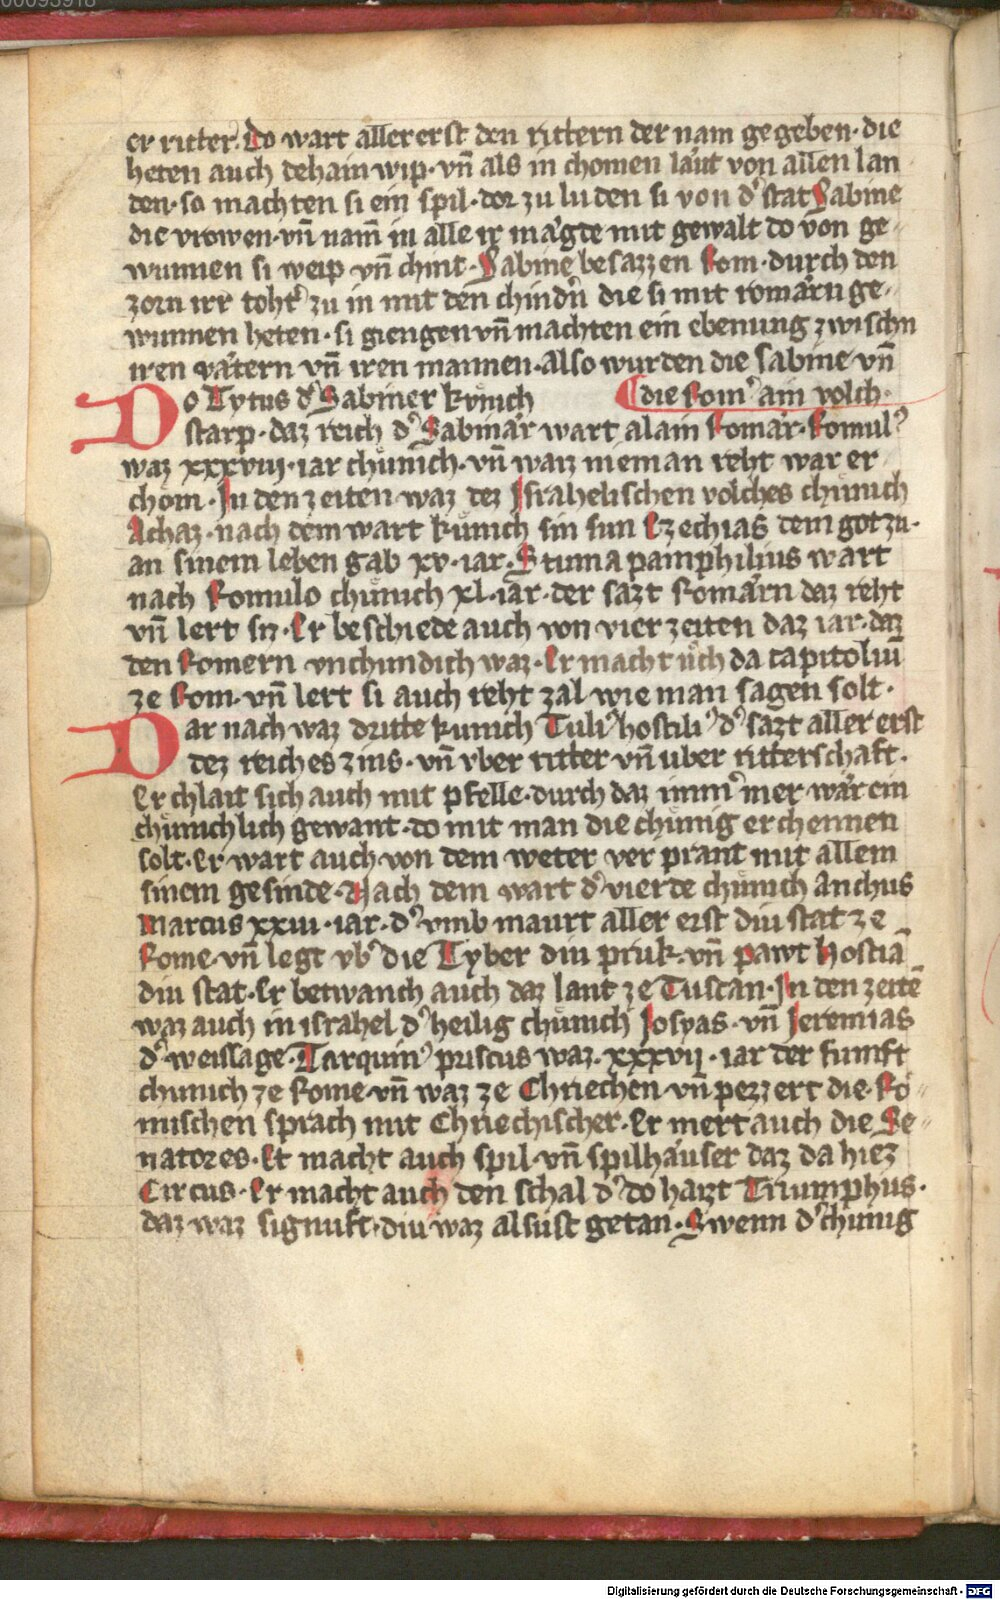 00095918
er ritter. Do wart aller erst den rittern der nam gegeben· die
heten auch dehain wip· vn̄ als in chomen läut von allen lan
den· so machten si ein spil· dor zu luden si von dˀ stat Sabine
die vrowen· vn̄ nam̄ in alle ir mägde mit gewalt do von ge
wunnen si weip vn̄ chint· Sabine besazzen Rom· durch den
zorn irr tohtˀ zu in mit den chindn̄ die si mit romärn ge
wunnen heten· si giengen vn̄ machten ein ebenung zwischn
iren vätern vn̄ iren mannen· also wurden die sabine vn̄
Do Tytus dˀ Sabiner kůnich
die Romˀ ain volch·
starp· daz reich dˀ Sabinär wart alain Romär· Romulˀ
waz xxxviij· iar chůnich· vn̄ waiz nieman reht war er
chom· In den zeiten waz dez Israhelischen volches chůnich
Achaz· nach dem wart kůnich sin sun Ezechias dem got zu·
an sinem leben gab xv· iar· Stuma pamphilius wart
nach Romulo chůnich xl· iar· der sazt Romärn daz reht
vn̄ lert sꝛ· Er beschiede auch von vier zeiten daz iar· daz
den Romern vnchundich waz· Er macht uͦch da capitoliū
ze Rom· vn̄ lert si auch reht zal wie man sagen solt·
Dar nach waz dritte kunich Tuliˀ hostiliˀ dˀ sazt aller erst
dez reiches zins· vn̄ vber ritter vn̄ uber ritterschaft·
Er chlait sich auch mit pfelle· durch daz immˀ mer wär ein
chůnichlich gewant· do mit man die chůnig erchennen
solt· Er wart auch von dem weter ver prant mit allem
sinem gesinde· Nach dem wart dˀ vierde chůnich Anchus
Marcus xxiii· iar· dˀ vmb maurt aller erst diu stat ze
Rome· vn̄ legt vbˀ die Tyber diu pruk· vn̄ pawt Hostiā
diu stat· Er betwanch auch daz lant ze Tuscan· In den zeitē
waz auch in israhel dˀ heilig chůnich Iosyas· vn̄ Ieremias
dˀ weissage· Tarquinˀ priscus waz· xxxvij· iar der funft
chunich ze Rome· vn̄ waz ze Chriechen vn̄ pezzert die Rö
mischen sprach mit Chriechischer· Er mert auch die Se
natores· Et macht auch spil· vn̄ spilhäuser daz da hiez
Circus· Er macht auch den schal dˀ do haizt Triumphus·
daz waz signuft· diu waz alsust getan· Swenn dˀ chunig
Digitalisierung gefördert durch die Deutsche Forschungsgemeinschaft - DFG